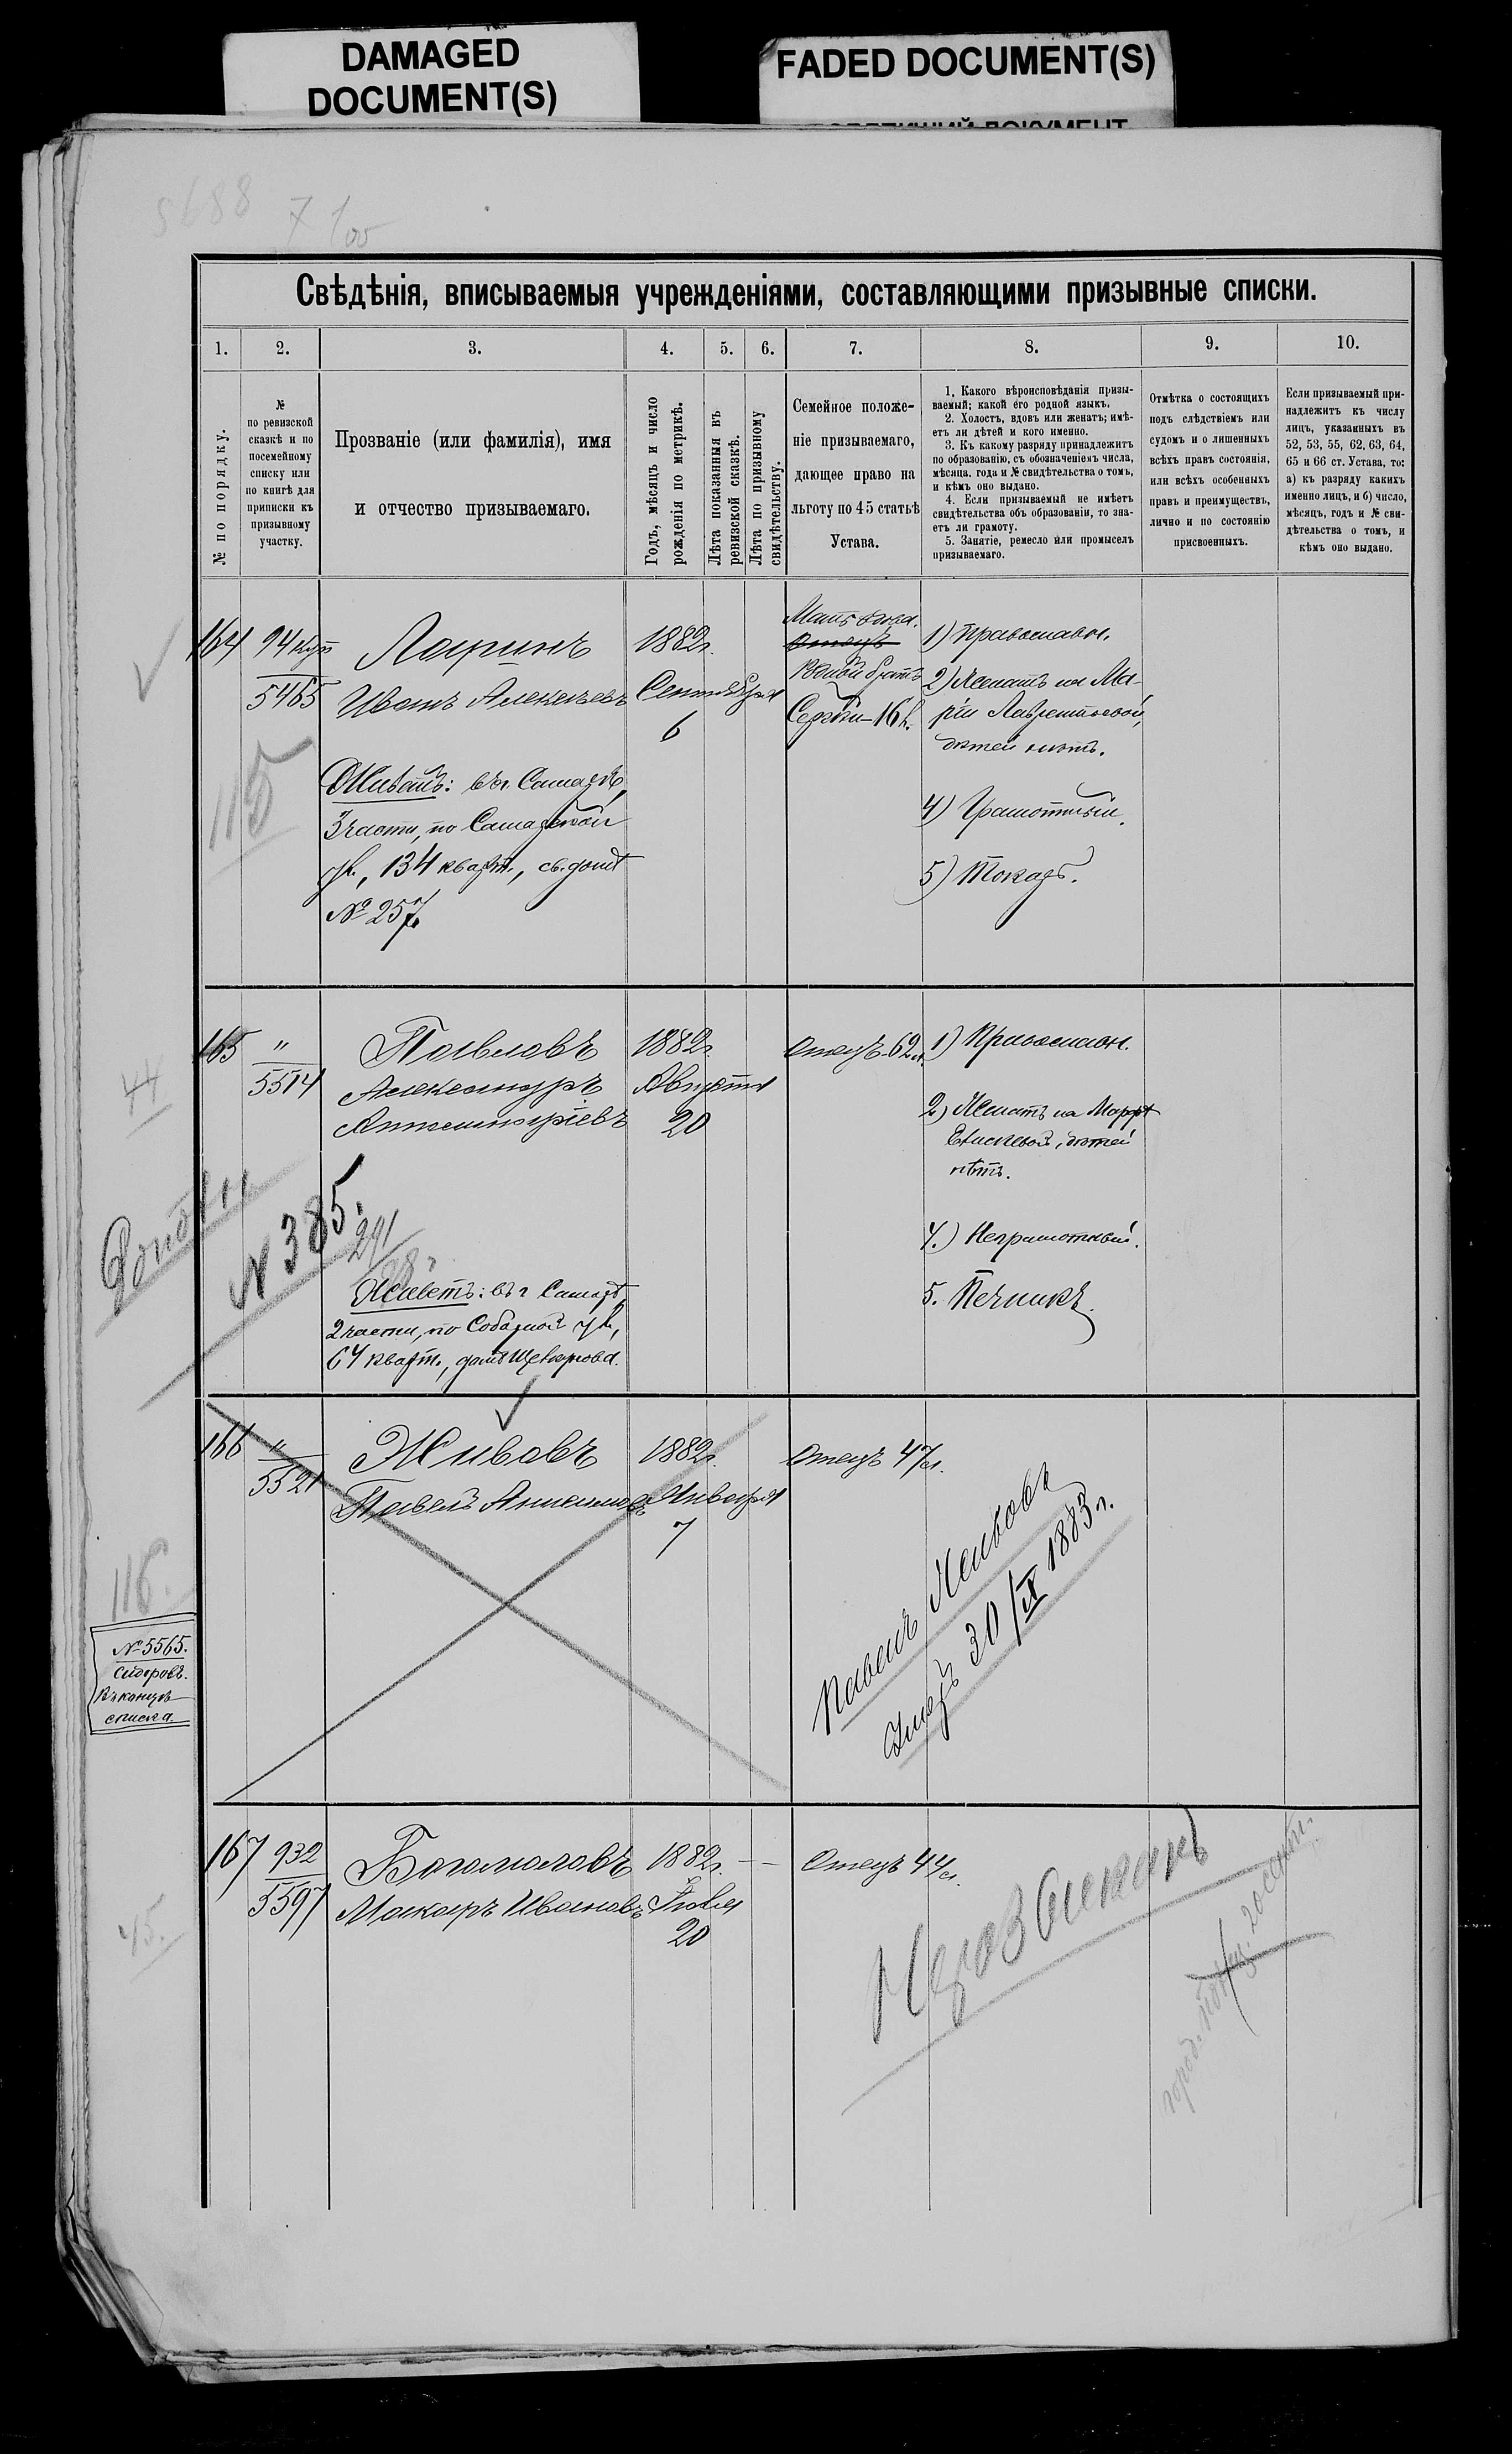 DAMAGED
DOCUMENT(S)
FADED DOCUMENT(S)
5688
7
Свѣдѣнія, вписываемыя учрежденіями, составляющими призывные списки.
1.
2.
3.
4.
5.
6.
7.
8.
9.
10.
№ по порядку.
№
по ревизской
сказкѣ и по
посемейному
списку или
по книгѣ для
приписки къ
призывному
участку.
Прозваніе (или фамилія), имя
и отчество призываемаго.
Годъ, мѣсяцъ и число
рожденія по метрикѣ.
Лѣта показанныя въ
ревизской сказкѣ.
Лѣта по призывному
свидѣтельству.
Семейное положе-
ніе призываемаго,
дающее право на
льготу по 45 статьѣ
Устава.
1. Какого вѣроисповѣданія призы-
ваемый; какой его родной языкъ.
2. Холостъ, вдовъ или женатъ; имѣ-
етъ ли дѣтей и кого именно.
3. Къ какому разряду принадлежитъ
по образованію, съ обозначеніемъ числа,
мѣсяца, года и № свидѣтельства о томъ,
и кѣмъ оно выдано.
4. Если призываемый не имѣетъ
свидѣтельства объ образованіи, то зна-
етъ ли грамоту.
5. Занятіе, ремесло или промыселъ
призываемаго.
Отмѣтка о состоящихъ
подъ слѣдствіемъ или
судомъ и о лишенныхъ
всѣхъ правъ состоянія,
или всѣхъ особенныхъ
правъ и преимуществъ,
лично и по состоянію
присвоенныхъ.
Если призываемый при-
надлежитъ къ числу
лицъ, указанныхъ въ
52, 53, 55, 62, 63, 64,
65 и 66 ст. Устава, то:
а) къ разряду какихъ
именно лицъ, и б) число,
мѣсяцъ, годъ и № сви-
дѣтельства о томъ, и
кѣмъ оно выдано.
164
94 куп
5465
Ларинъ
Иванъ Алексѣевъ
1882г.
Сентября
6
Мать вдова.
Отецъ
братъ
Сергѣй-16 л.
1) Православн.
2) Женатъ на Ма-
ріи Лаврентьевой,
дѣтей нѣтъ.
4) Грамотный.
5) Токарь.
115
Живетъ: въ г. Самарѣ,
3 части, по Самарской
ул., 134 кварт., св. домъ
№ 257.
165
"
5514
Павловъ
Александръ
1882г.
Августа
20
Отецъ-62 л.
1) Православн.
2) Женатъ на Марфѣ
дѣтей
нѣтъ.
4.) Неграмотный.
5. Печникъ.
44
N 385.
291
Живетъ: въ г. Самарѣ,
2 части, по Соборной ул.,
64 кварт., домъ
166
"
5521
Живовъ
Павелъ Анисимовъ
1882г.
Января
7
Отецъ 47 л.
Павелъ
Умеръ 30/IX 1883 г.
116.
№ 5565.
Сидоровъ.
Въ концѣ
списка.
167
932
5597
Богомоловъ
Макаръ Ивановъ
1882г.
Іюля
20
Отецъ 44 л.
45.